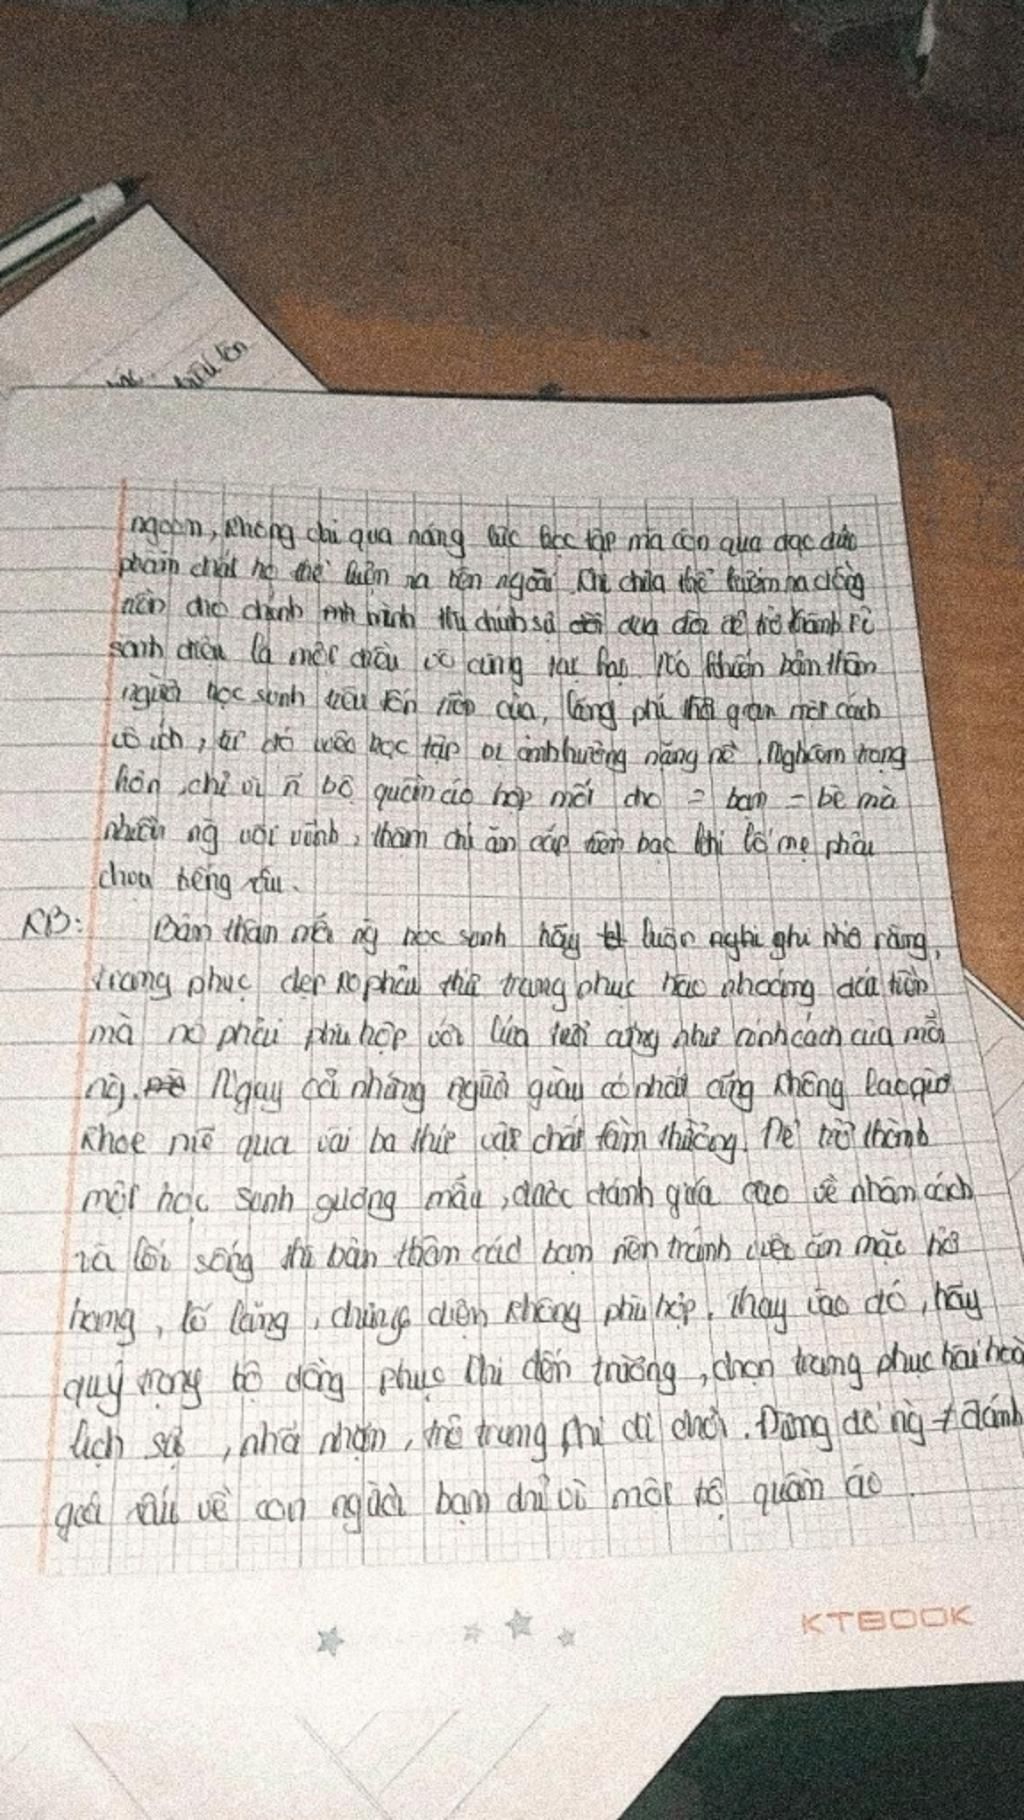 triệu tên
ngoan, không chỉ qua năng lực học tập mà còn qua đạo đức
phẩm chất họ thể hiện ra bên ngoài. Khi chưa thể kiếm ra đồng
tiền cho chính mình thì chính sự đua đòi để trở thành
sành điệu là một điều vô cùng tai hại. Nó khiến bản thân
người học sinh tiêu tốn tiền của, lãng phí thời gian một cách
vô ích, từ đó việc học tập bị ảnh hưởng nặng nề. Nghiêm trọng
hơn, chỉ vì bộ quần áo hợp mốt cho = bạn = bè mà
nhiều ng vội vành, thậm chí ăn cắp tiền bạc khi bố mẹ phải
chịu tiếng xấu.
KB: Bản thân mỗi ng học sinh hãy luôn nghi ghi nhớ rằng,
trang phục đẹp ko phải thứ trang phục hào nhoáng đắt tiền
mà nó phải phù hợp với lứa tuổi cũng như tính cách của mỗi
ng. Ngay cả những người giàu có nhất cũng không bao giờ
khoe mẽ qua vài ba thứ vật chất tầm thường. Để trở thành
một học sinh gương mẫu, được đánh giá cao về nhân cách
và lối sống thì bản thân các bạn nên tránh việc ăn mặc hở
hang, lố lăng, chưng diện không phù hợp. Thay vào đó, hãy
quý trọng bộ đồng phục khi đến trường, chọn trang phục hài hoà
lịch sự, nhã nhặn, trẻ trung khi đi chơi. Đừng để ng + đánh
giá xấu về con người bạn chỉ vì một bộ quần áo.
KTBOOK